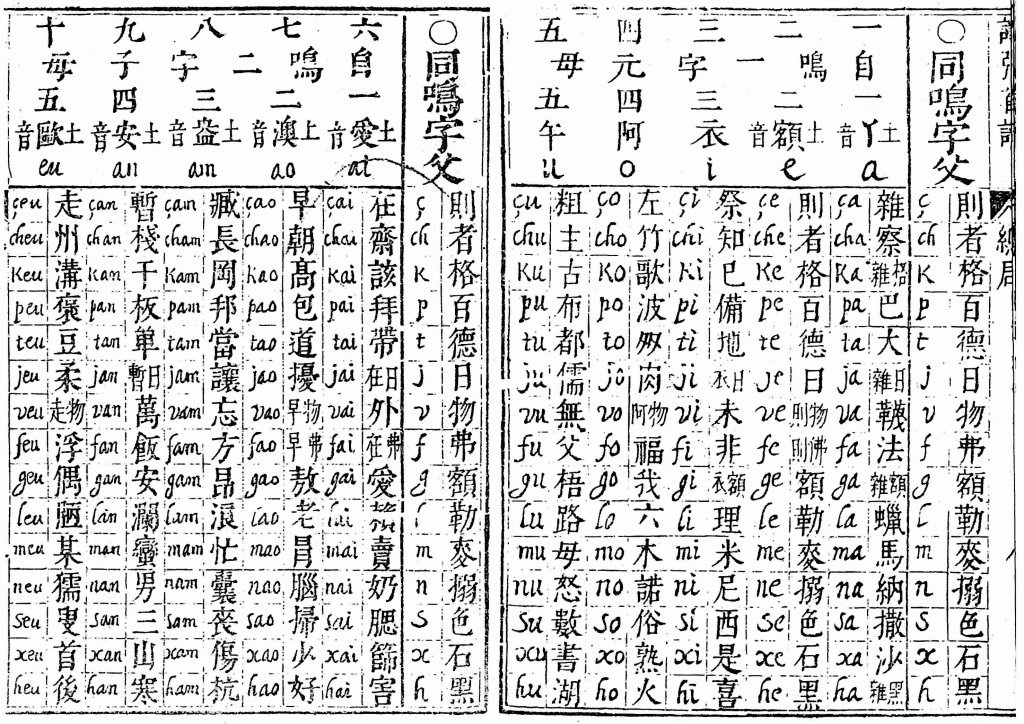 ○同鳴字父
則者格百德日物弗額勒麥搦色石黑
ç ch k p t j v f g l m n s x h
一自一土丫音 a
雜察格雜巴大日雜韈法額雜蠟馬納撒沙黑雜
ça cha ka pa ta ja va fa ga la ma na sa xa ha
二鳴二土額音 e
則者格百德日物則弗則額勒麥搦色石黑
çe che ke pe te je ve fe ge le me ne se xe he
一
三字三衣 i
祭知已備地日衣未非額衣理米尼西是喜
çi chi ki pi ti ji vi fi gi li mi ni si xi hi
四元四阿 o
左竹歌波肉物阿福我六木諾俗熟火
ço cho ko po to jo vo fo go lo mo no so xo ho
五母五午 u
粗主古布都儒無父梧路母怒數書湖
çu chu ku pu tu ju vu fu gu lu mu nu su xu hu
○同鳴字父
則者格百德日物弗額勒麥搦色石黑
ç ch k p t j v f g l m n s x h
六自一土愛音 ai
在齋該拜帶日在外弗在愛賴賣奶腮篩害
çai chai kai pai tai jai vai fai gai lai mai nai sai xai hai
七鳴二土澳音 ao
早朝高包道擾物早弗早敖老冒腦掃少好
çao chao kao pao tao jao vao fao gao lao mao nao sao xao hao
二
八字三土盎音 am
臧長岡邦當讓忘方昂浪忙囊喪傷杭
çam cham kam pam tam jam vam fam gam lam mam nam sam xam ham
九子四土安音 an
暫棧干板單日暫萬飯安瀾蠻男三山寒
çan chan kan pan tan jan van fan gan lan man nan san xan han
十母五土歐音 eu
走州溝裒豆柔物走浮偶陋某獳叟首後
çeu cheu keu peu teu jeu veu feu geu leu meu neu seu xeu heu